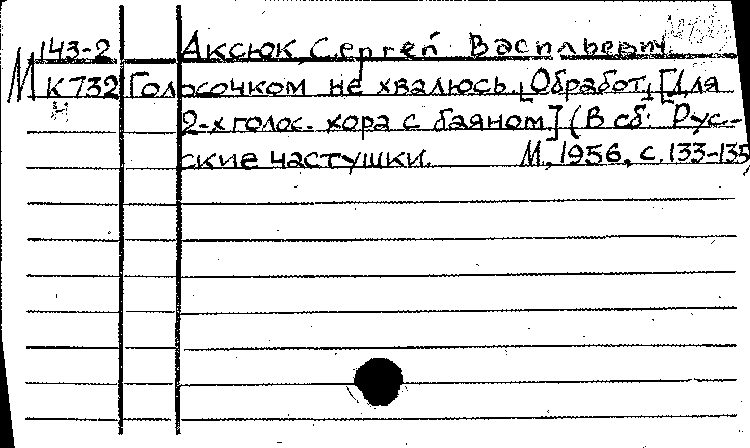 143-2 Аксюк, Сергей Васильевич
М К732 Голосочком не хвалюсь. [Обработ.] [Для
Н 2-х голос. хора с баяном] (В сб: Рус-
ские частушки. М., 1956, с. 133-135